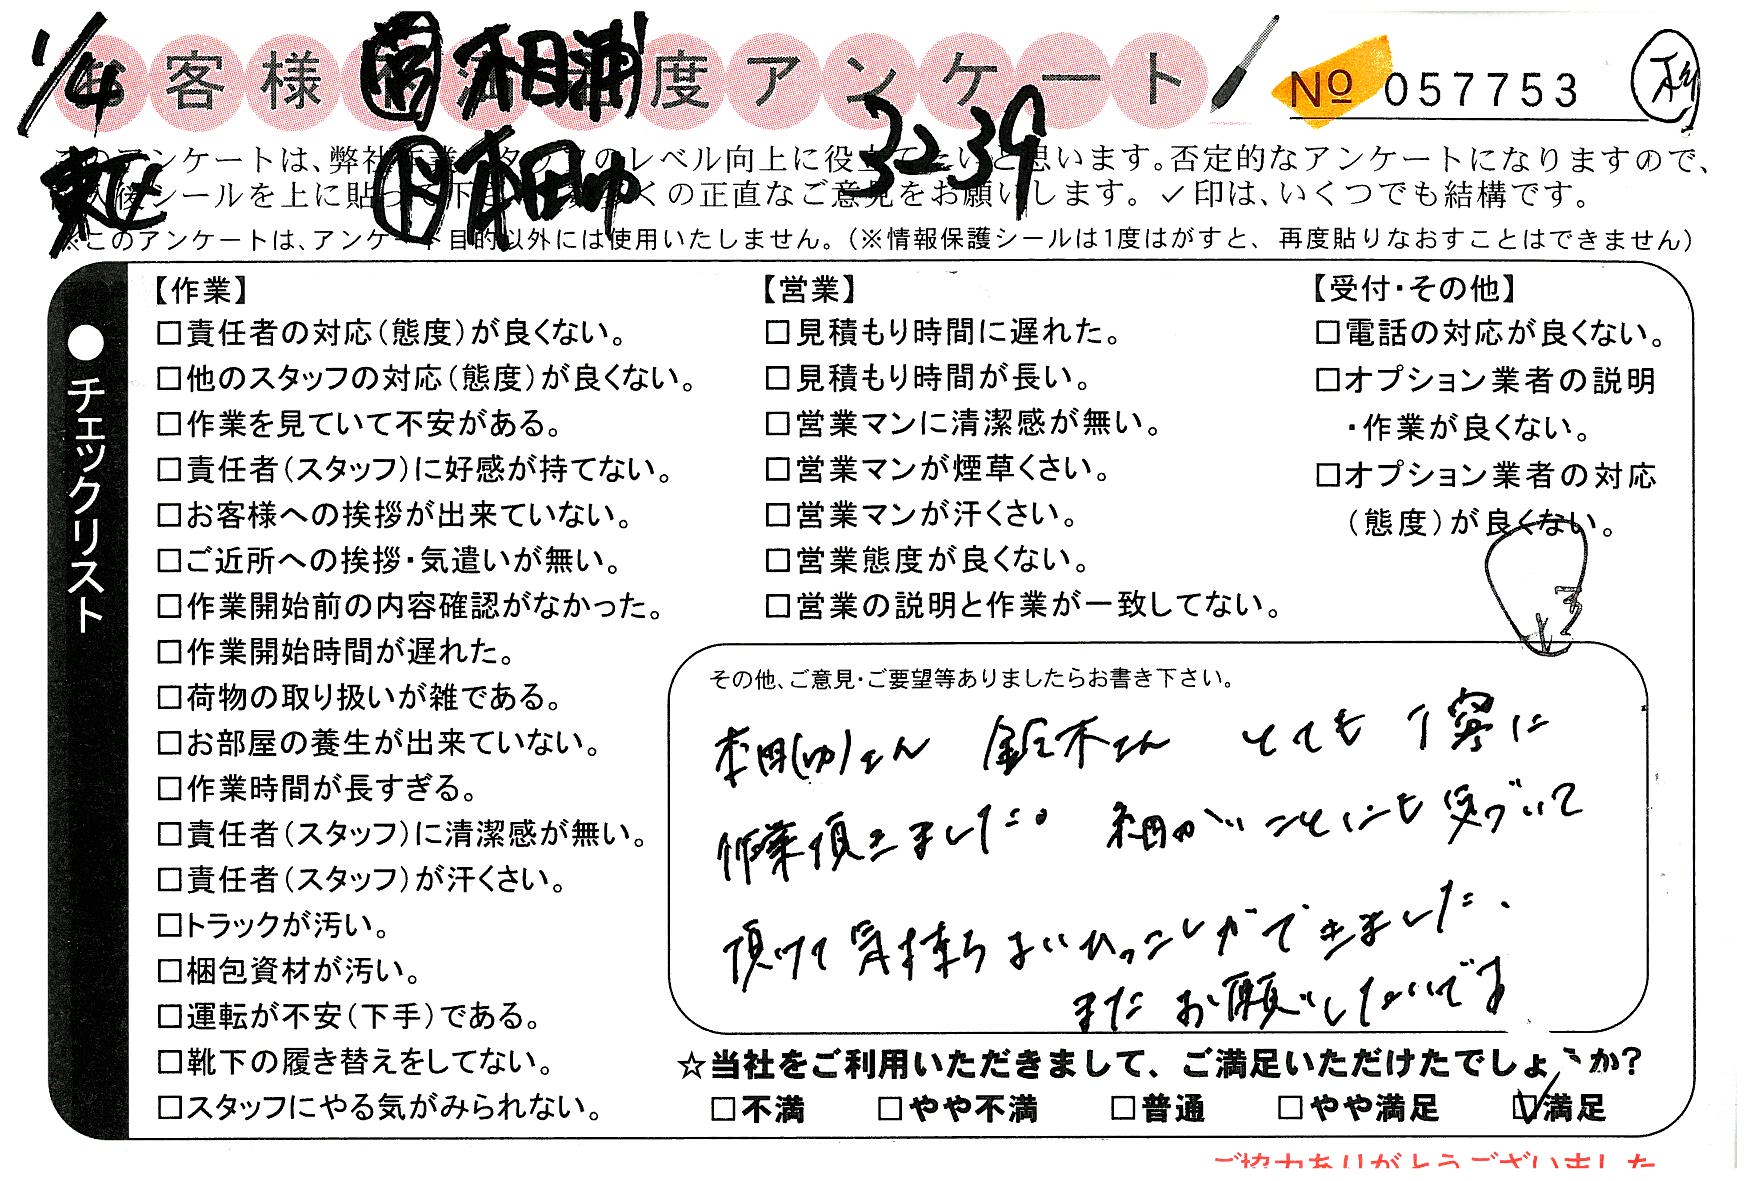 1/4 お客様不満足度アンケート
営 相浦
No 057753
杉
東社
ト 本田ゆ
3239
このアンケートは、弊社作業スタッフのレベル向上に役立てたいと思います。否定的なアンケートになりますので、
記入後シールを上に貼って下さい。多くの正直なご意見をお願いします。✓印は、いくつでも結構です。
※このアンケートは、アンケート目的以外には使用いたしません。（※情報保護シールは1度はがすと、再度貼りなおすことはできません）
●チェックリスト
【作業】
□責任者の対応（態度）が良くない。
□他のスタッフの対応（態度）が良くない。
□作業を見ていて不安がある。
□責任者（スタッフ）に好感が持てない。
□お客様への挨拶が出来ていない。
□ご近所への挨拶・気遣いが無い。
□作業開始前の内容確認がなかった。
□作業開始時間が遅れた。
□荷物の取り扱いが雑である。
□お部屋の養生が出来ていない。
□作業時間が長すぎる。
□責任者（スタッフ）に清潔感が無い。
□責任者（スタッフ）が汗くさい。
□トラックが汚い。
□梱包資材が汚い。
□運転が不安（下手）である。
□靴下の履き替えをしてない。
□スタッフにやる気がみられない。
【営業】
□見積もり時間に遅れた。
□見積もり時間が長い。
□営業マンに清潔感が無い。
□営業マンが煙草くさい。
□営業マンが汗くさい。
□営業態度が良くない。
□営業の説明と作業が一致してない。
【受付・その他】
□電話の対応が良くない。
□オプション業者の説明
・作業が良くない。
□オプション業者の対応
（態度）が良くない。
その他、ご意見・ご要望等ありましたらお書き下さい。
本田(ゆ)さん 鈴木さん とても丁寧に
作業頂きました。細かいことにも気づいて
頂けて気持ちよいひっこしができました、
またお願いしたいです
☆当社をご利用いただきまして、ご満足いただけたでしょうか？
□不満 □やや不満 □普通 □やや満足 ☑満足
ご協力ありがとうございました